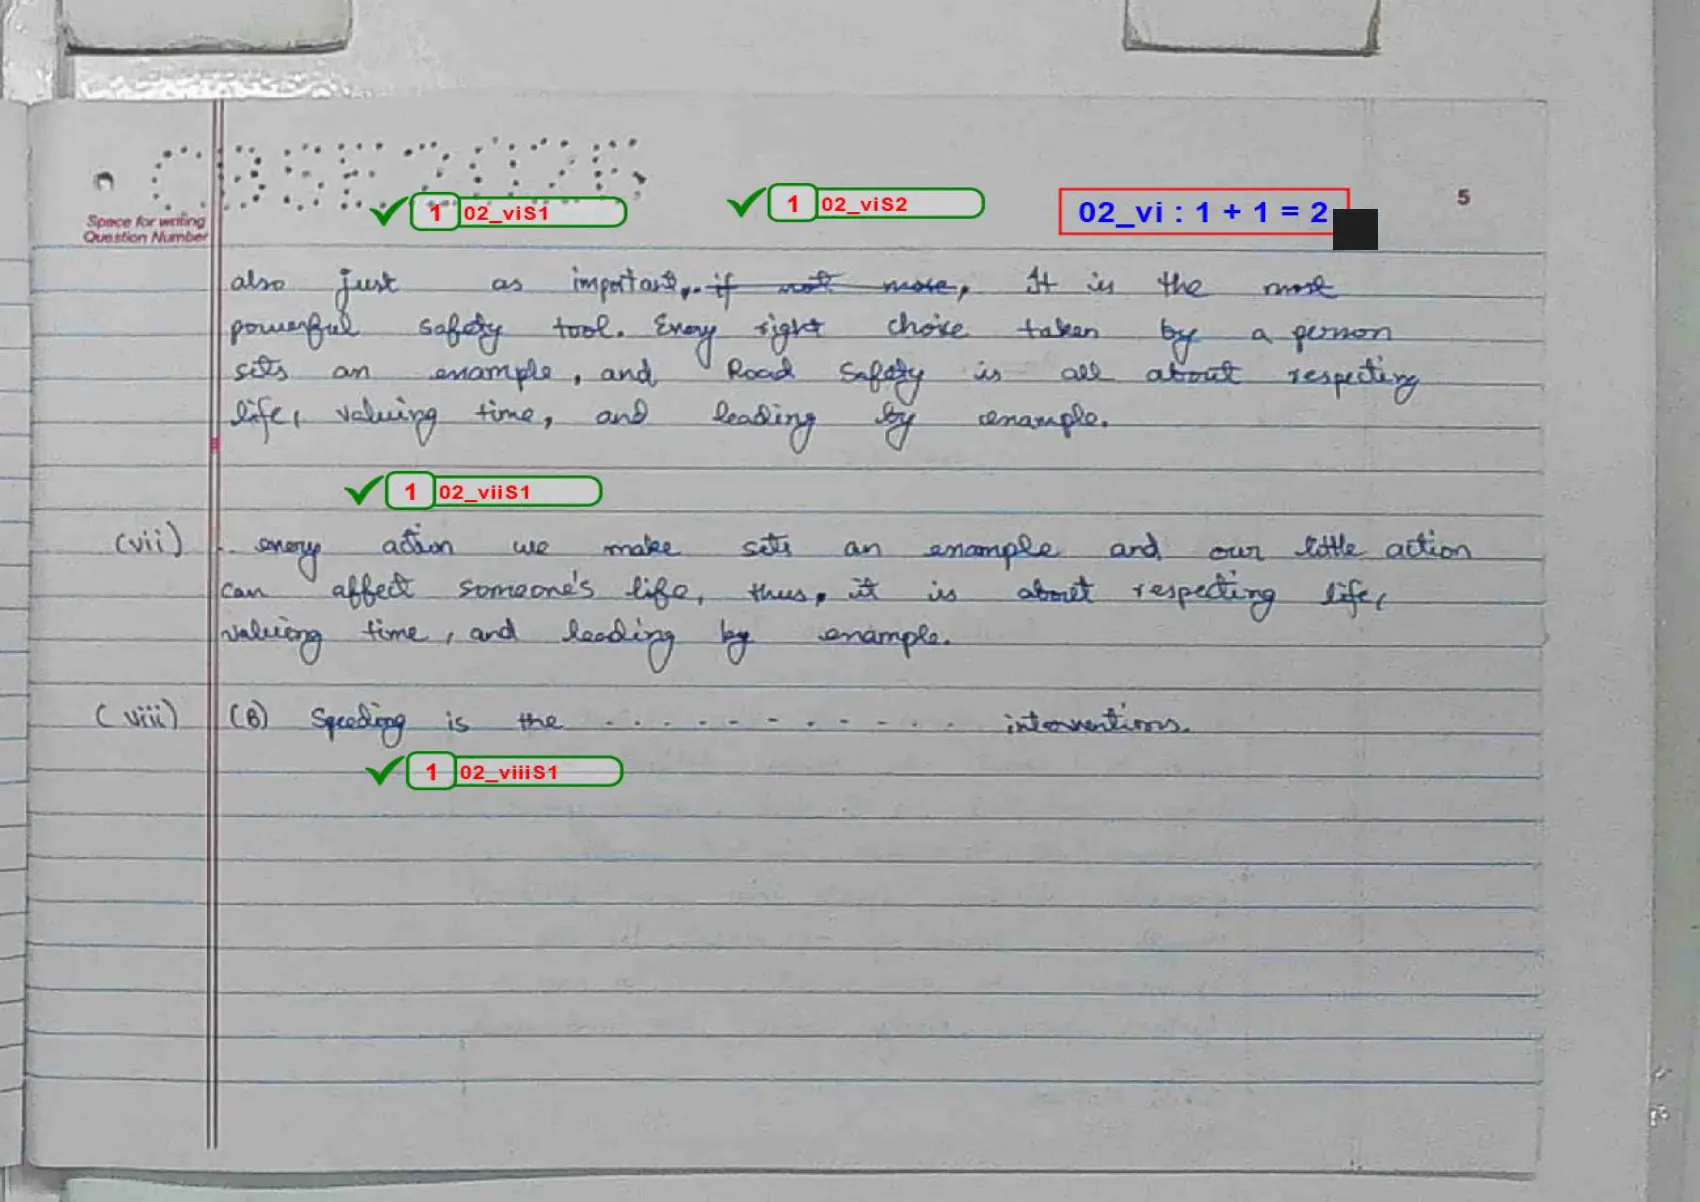 CBSE 2026
✓ 1 02_viS1 ✓ 1 02_viS2 02_vi : 1 + 1 = 2 5
Space for writing
Question Number
also just as important, if not more, It is the most
powerful safety tool. Every right choise taken by a person
sets an example, and Road Safety is all about respecting
life, valuing time, and leading by example.
✓ 1 02_viiS1
(vii) every action we make sets an example and our little action
can affect someone's life, thus, it is about respecting life,
valuing time, and leading by example.
(viii) (B) Speeding is the - - - - - - - - - - - interventions.
✓ 1 02_viiiS1